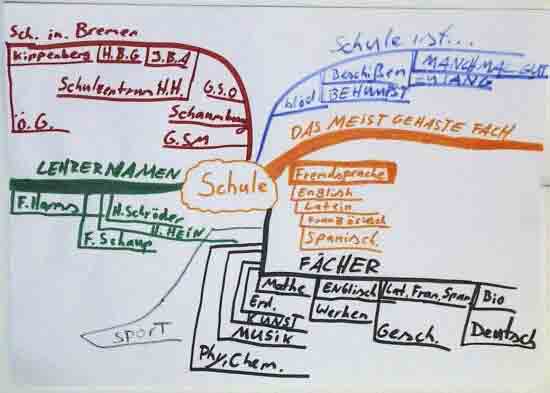 Sch. in. Bremen
Kippenberg H.B.G J.B.A
Schulzentrum H.H.
G.S.O
Schaumburg
Ö.G.
G.SM
Schule ist...
blöd
Beschißen
BEHUMPST
MANCHMAL GUT
DAS MEIST GEHASTE FACH
LEHRERNAMEN
F. Harms
H. Schröder
H. HEIN
F. Schaup
Schule
Fremdsprache
Englisch
Latein
Französisch
Spanisch.
SPORT
FÄCHER
Mathe
Erd.
KUNST
MUSIK
Phy, Chem.
ENGlisch
Werken
Lat, Fran, Span
Gesch.
Bio
Deutsch